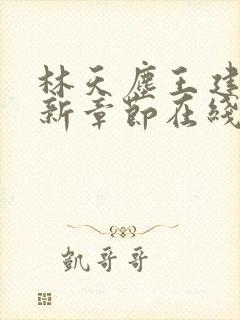 林天塵王建
新章節在綫
凱哥哥